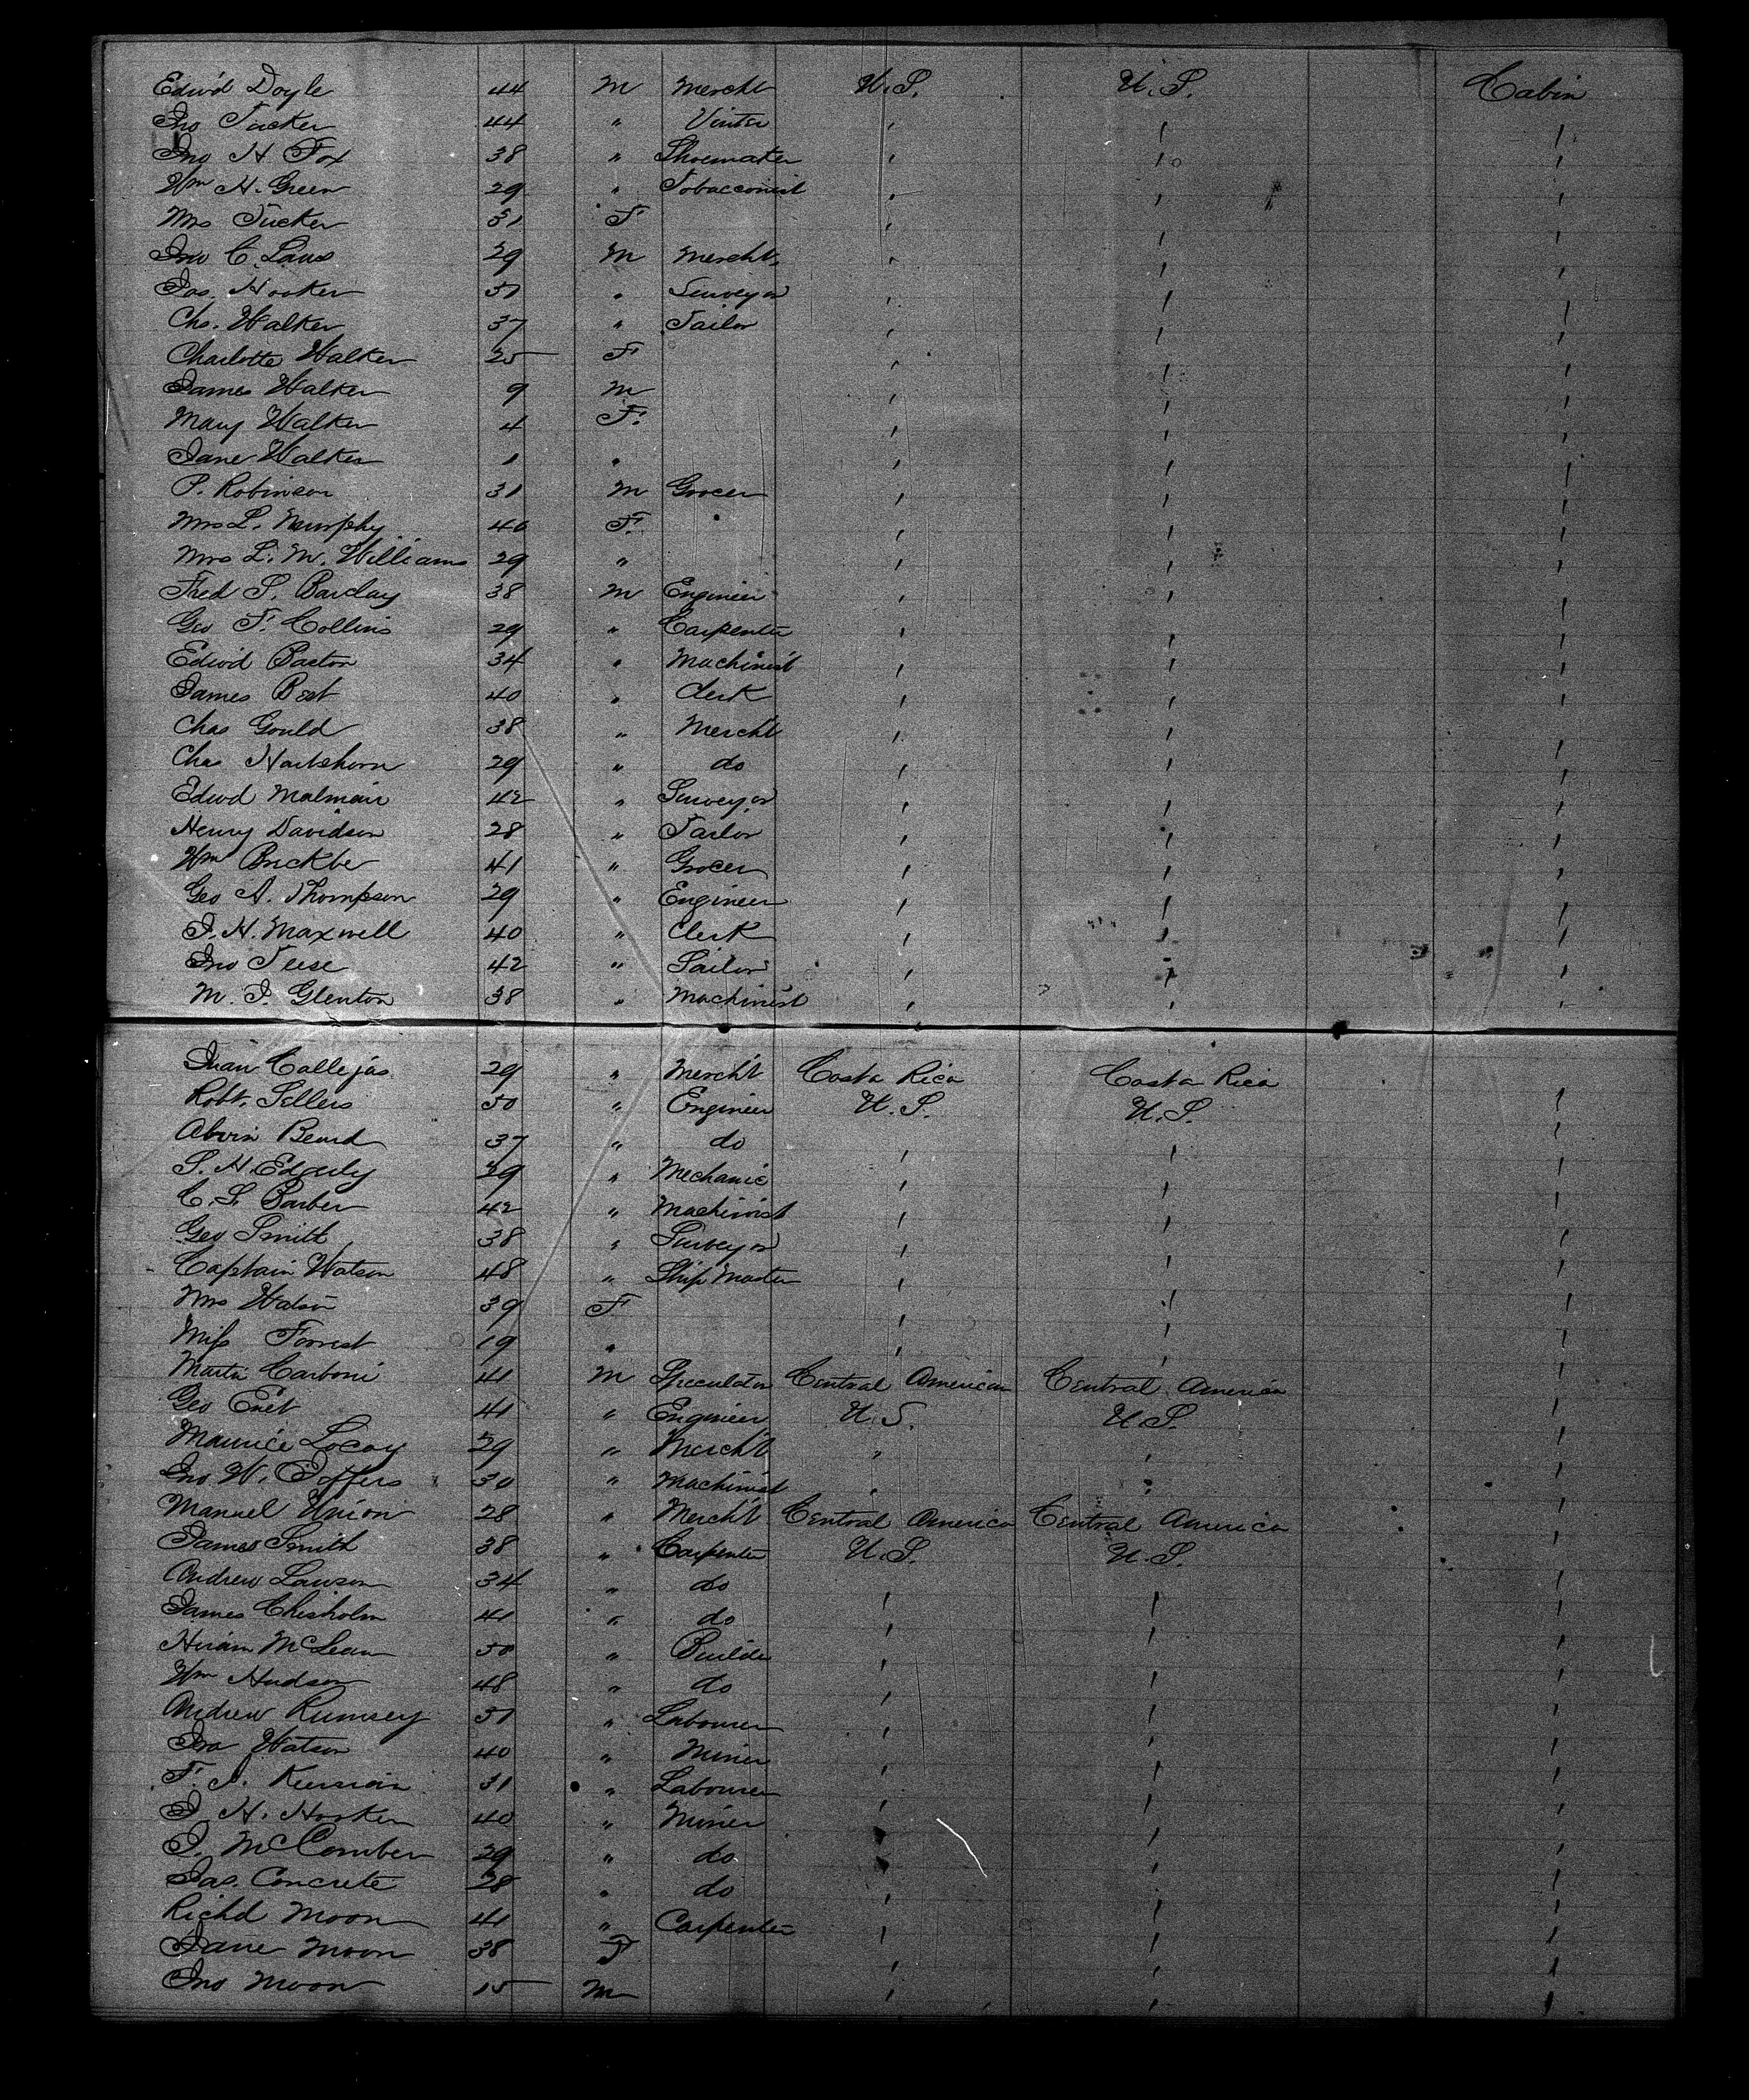 Edwd Doyle 44 M Mercht U.S. U.S. Cabin
Jno Tucker 44 " Vinter , , ,
Jno H Fox 38 " Shoemaker , , ,
Wm H. Green 29 " Tobacconist , , ,
Mrs Tucker 31 F , , ,
Jno C. Laws 29 M Mercht. , , ,
Jas. Hooker 51 " Surveyor , , ,
Chs. Walker 37 " Tailor , , ,
Charlotte Walker 25 F , , ,
James Walker 9 M , , ,
Mary Walker 4 F. , , ,
Jane Walker 1 " , , ,
P. Robinson 31 M Grocer , , ,
Mrs L. Murphy 40 F. , , ,
Mrs L. M. Williams 29 " , , ,
Fred S. Barclay 38 M Engineer , , ,
Geo F. Collins 29 " Carpenter , , ,
Edwd Barton 34 " Machinist , , ,
James Best 40 " Clerk , , ,
Chas Gould 38 " Mercht , , ,
Chas Hartshorn 29 " do , , ,
Edwd 42 " Surveyor , , ,
Henry Davidson 28 " Tailor , , ,
Wm 41 " Grocer , , ,
Geo A. Thompson 29 " Engineer , , ,
J. H. Maxwell 40 " Clerk , , ,
Jno Teese 42 " Sailor , , ,
M. J. Glenton 38 " Machinist , , ,
Juan Callejas 29 " Mercht Costa Rica Costa Rica ,
Robt. Sellers 50 " Engineer U.S. U.S. ,
Alvin Beard 37 " do , , ,
S. H. Edgerly 39 " Mechanic , , ,
C. S. Barber 42 " Machinist , , ,
Geo Smith 38 " Surveyor , , ,
Captain Watson 48 " Ship Master , , ,
Mrs Watson 39 F , , ,
Miss Forrest 19 " , , ,
Martin Carboni 41 M Speculator Central American Central America ,
Geo 41 " Engineer U.S. U.S. ,
Maurice 29 " Mercht , , ,
Jno W. 30 " Machinist , , ,
Manuel Union 28 " Mercht Central America Central America ,
James Smith 38 " Carpenter U.S. U.S. ,
Andrew Lawson 34 " do , , ,
James Chisholm 41 " do , , ,
Hiram McLean 50 " Builder , , ,
Wm Hudson 48 " do , , ,
Andrew Rumsey 51 " Labourer , , ,
Ira Watson 40 " Miner , , ,
F. 31 " Labourer , , ,
J. H. Hooker 40 " Miner , , ,
J. McComber 29 " do , , ,
Jas. Concrete 28 " do , , ,
Richd Moon 41 " Carpenter , , ,
Jane Moon 38 F , , ,
Jno Moon 15 M , , ,